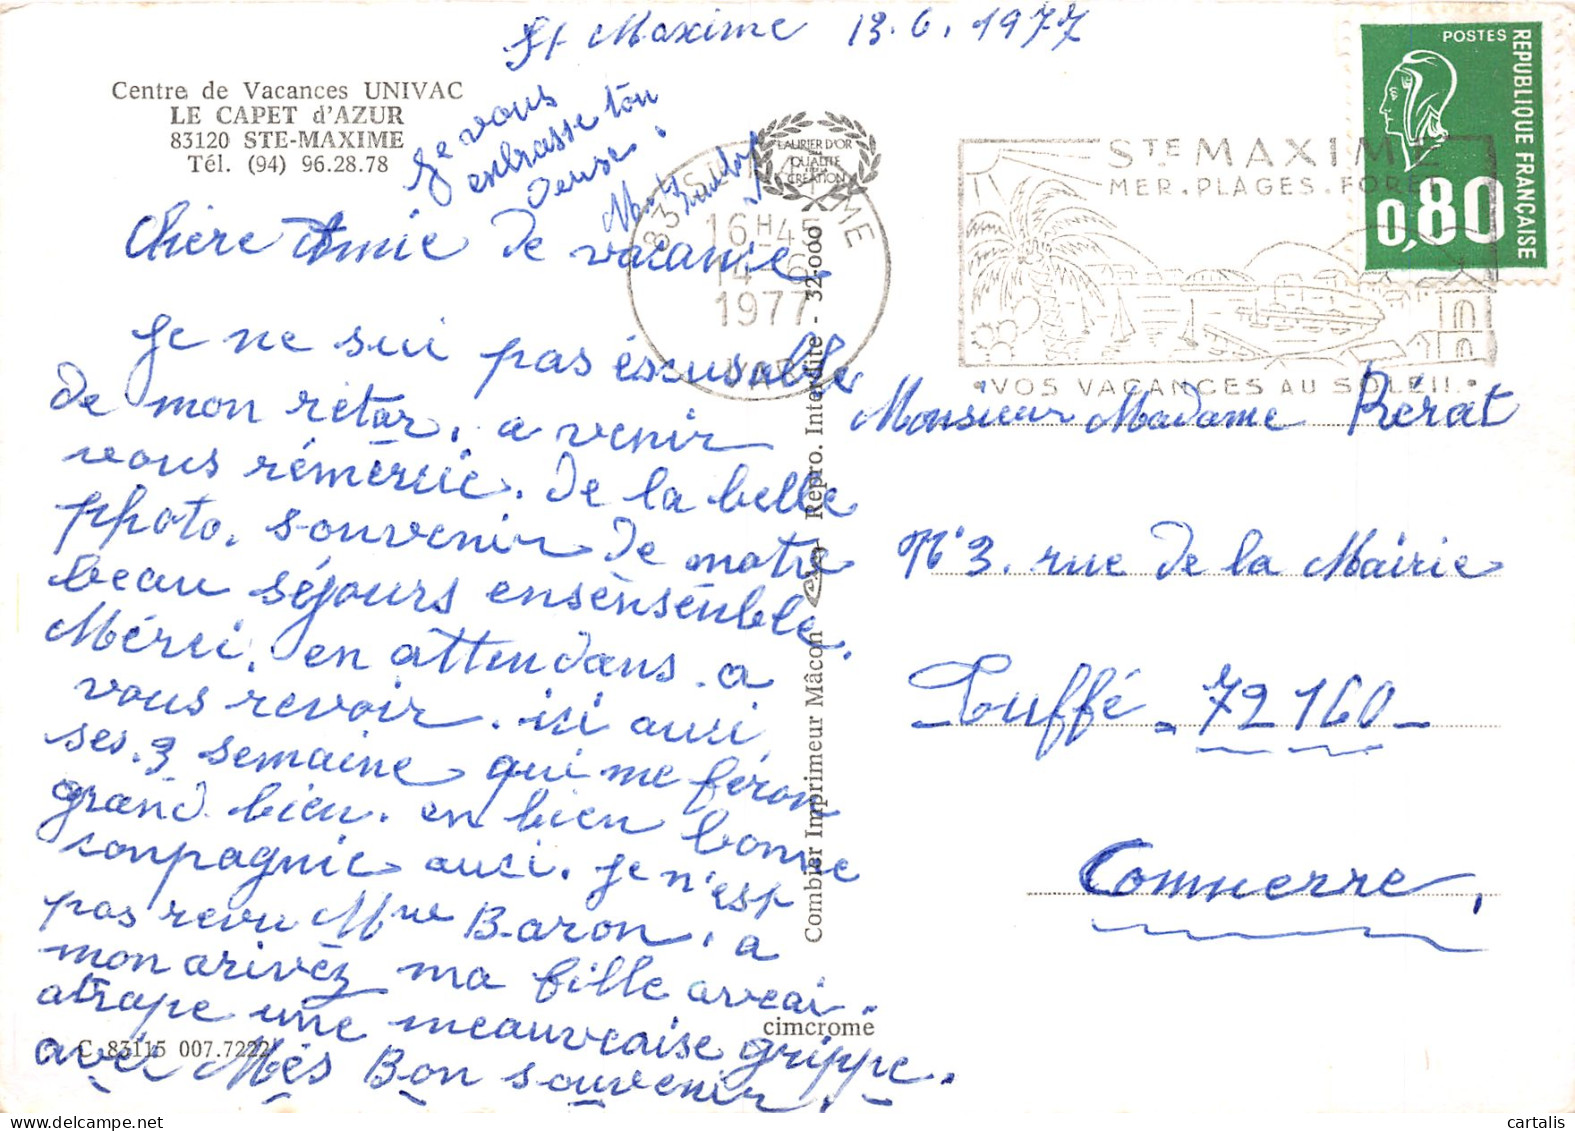 St Maxime 13.6.1977
Centre de Vacances UNIVAC
LE CAPET d'AZUR
83120 STE-MAXIME
Tél. (94) 96.28.78
Je vous
embrasse ton
LAURIER D'OR
QUALITE
CREATION
83 STE MAXIME
16H45
14-6
1977
VAR
STE MAXIME
MER.PLAGES.FORET
VOS VACANCES AU SOLEIL
POSTES
REPUBLIQUE FRANÇAISE
0,80
Chère Amie de vacance
Je ne sui pas éscusable
De mon rétar, a venir
vous rémercie. De la belle
pphoto. souvenir de notre
beau séjours ensensenble.
Mérci. en attendans. a
vous revoir. isi auci,
ses. 3 semaine qui me féron
grand bien. en bien bonne
conpagnie auci. je n'est
pas revu Mme Baron. a
mon arivéz ma fille aveai.
atrape une meauveaise grippe.
avec Més Bon souvenir.
Combier Imprimeur Mâcon Repro. Interdite - 32.000
cimcrome
C 83115 007.7222
Monsieur Madame Rérat
N°3. rue de la Mairie
Tuffé - 72160 -
Connerre,